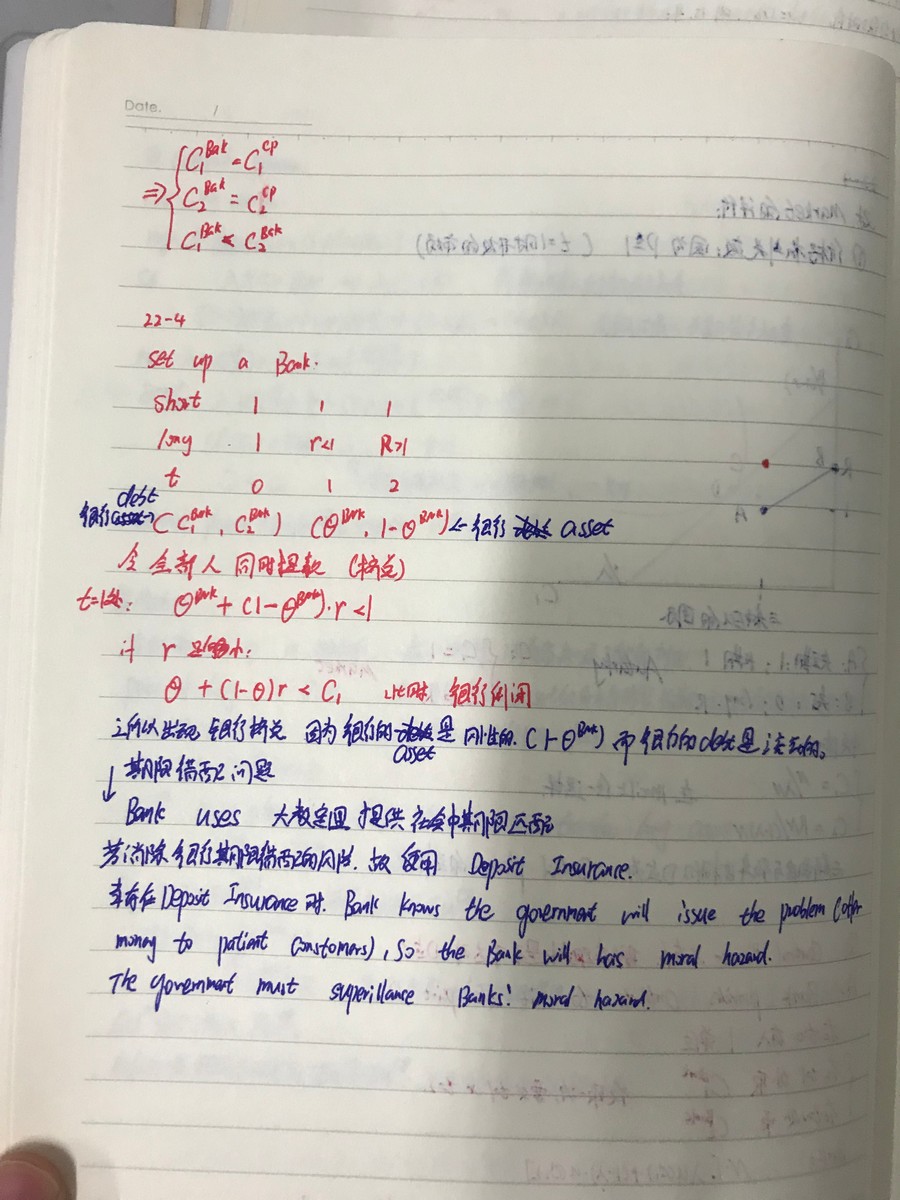 Date. /
⇒ { C₁^Bak = C₁^CP
C₂^Bak = C₂^CP
C₁^Bak < C₂^Bak
22-4
set up a Bank.
short 1 1 1
long 1 r<1 R>1
t 0 1 2
debt
银行 asset→ (C₁^Bank, C₂^Bank) (θ^Bank, 1-θ^Bank) ← 银行 debt asset
令 全部人 同时提款 (挤兑)
t=1处: θ^Bank + (1-θ^Bank)·r < 1
if r 足够小:
θ + (1-θ)r < C₁ 此时 银行倒闭
之所以出现 银行挤兑 因为 银行的 debt 是 风险的. (1-θ^Bank) 而银行的debt是流动的。
asset
↓ 期限错配问题
Bank uses 大数定理 提供 社会中期限匹配
若消除 银行期限错配的风险. 故 使用 Deposit Insurance.
存在 Deposit Insurance 时. Bank knows the government will issue the problem (offer
money to patient constomers), so the Bank will has moral hazard.
The government must superillance Banks! moral hazard.